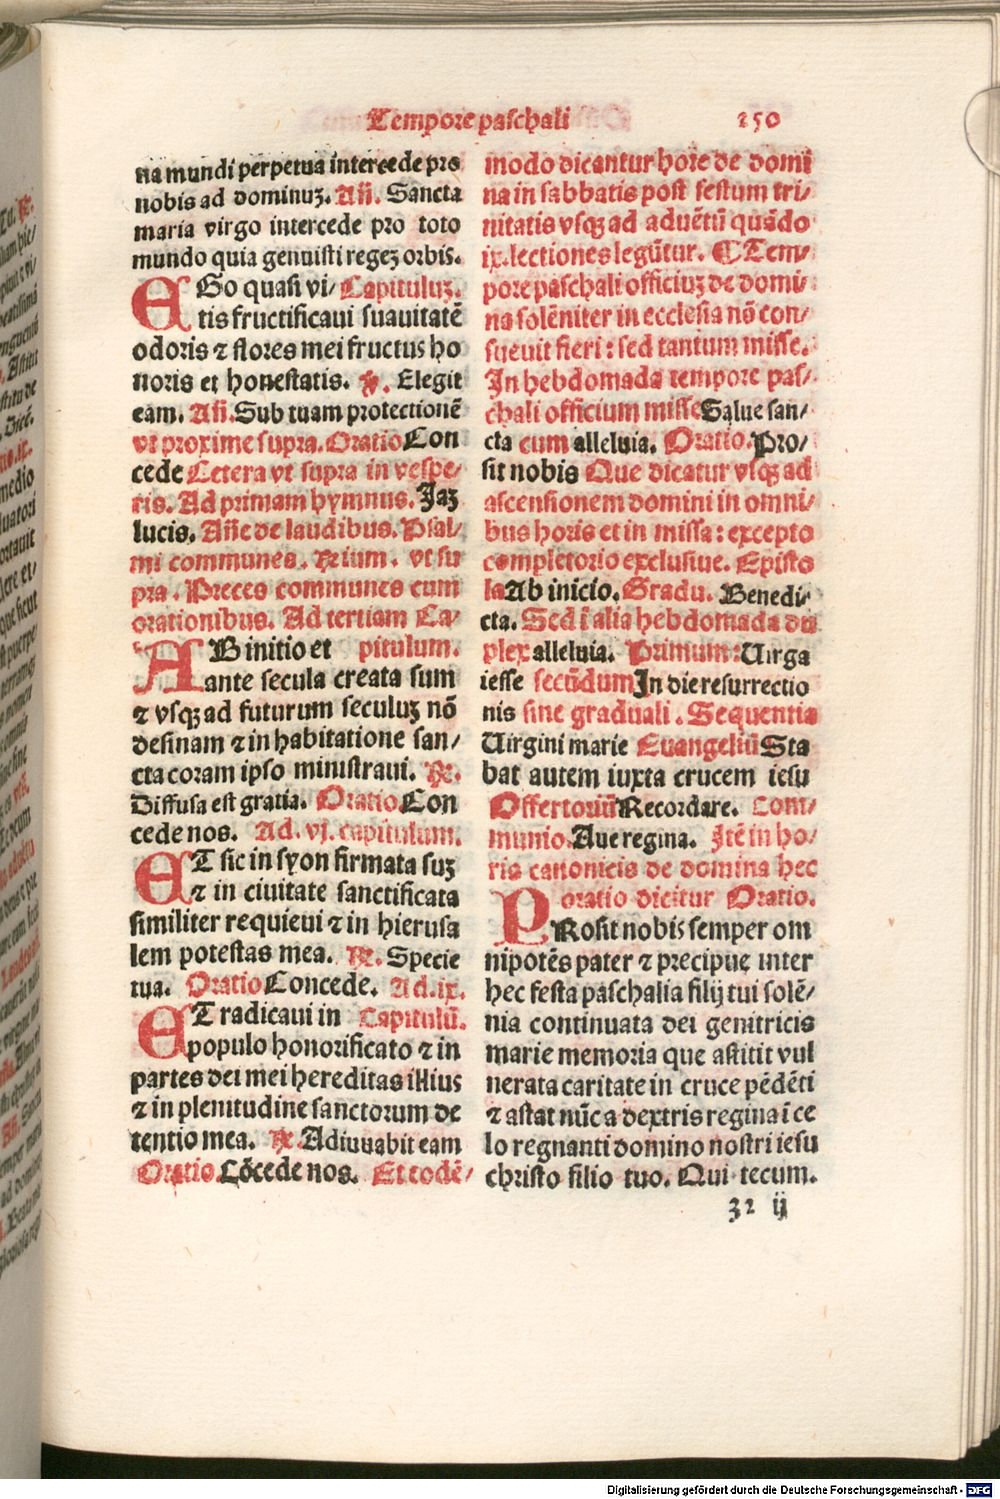 Tempore paschali 250
na mundi perpetua intercede pro
nobis ad dominuꝫ. Añ. Sancta
maria virgo intercede pro toto
mundo quia genuisti regeꝫ orbis.
EGo quasi vi/ Capituluꝫ.
tis fructificaui suauitatē
odoris ⁊ flores mei fructus ho
noris et honestatis. ℟. Elegit
eam. Añ. Sub tuam protectionē
vt proxime supra. Oratio Con
cede Cetera vt supra in vespe/
ris. Ad primam hymnus. Jaꝫ
lucis. Añe de laudibus. Psal/
mi communes. ℟rium. vt su
pra. Preces communes cum
orationibus. Ad tertiam Ca/
AB initio et pitulum.
ante secula creata sum
⁊ vsqꝫ ad futurum seculuꝫ nō
desinam ⁊ in habitatione san/
cta coram ipso ministraui. ℟.
Diffusa est gratia. Oratio Con
cede nos. Ad. vj. capitulum.
ET sic in syon firmata suꝫ
⁊ in ciuitate sanctificata
similiter requieui ⁊ in hierusa
lem potestas mea. ℟. Specie
tua. Oratio Concede. Ad. ix.
ET radicaui in Capitulū.
populo honorificato ⁊ in
partes dei mei hereditas illius
⁊ in plenitudine sanctorum de
tentio mea. ℟. Adiuuabit eam
Oratio. Cōcede nos. Et eodē/
modo dicantur hore de domi
na in sabbatis post festum tri/
nitatis vsqꝫ ad aduētū quādo
ix. lectiones legūtur. ¶ Tem/
pore paschali officiuꝫ de domi/
na solēniter in ecclesia nō con/
sueuit fieri: sed tantum misse.
In hebdomada tempore pas/
chali officium misse Salue san/
cta cum alleluia. Oratio. Pro/
sit nobis Que dicatur vsqꝫ ad
ascensionem domini in omni/
bus horis et in missa: excepto
completorio exclusiue. Episto
la Ab inicio. Gradu. Benedi/
cta. Sed ī alia hebdomada du
plex alleluia. Primum: Uirga
iesse secūdum In die resurrectio
nis sine graduali. Sequentia
Uirgini marie Euangeliū Sta
bat autem iuxta crucem iesu
Offertoriū Recordare. Com/
munio. Aue regina. Itē in ho/
ris canonicis de domina hec
oratio dicitur Oratio.
PRosit nobis semper om
nipotēs pater ⁊ precipue inter
hec festa paschalia filij tui solē/
nia continuata dei genitricis
marie memoria que astitit vul
nerata caritate in cruce pēdēti
⁊ astat nūc a dextris regina ī ce
lo regnanti domino nostri iesu
christo filio tuo. Qui tecum.
32 ij
Digitalisierung gefördert durch die Deutsche Forschungsgemeinschaft - DFG